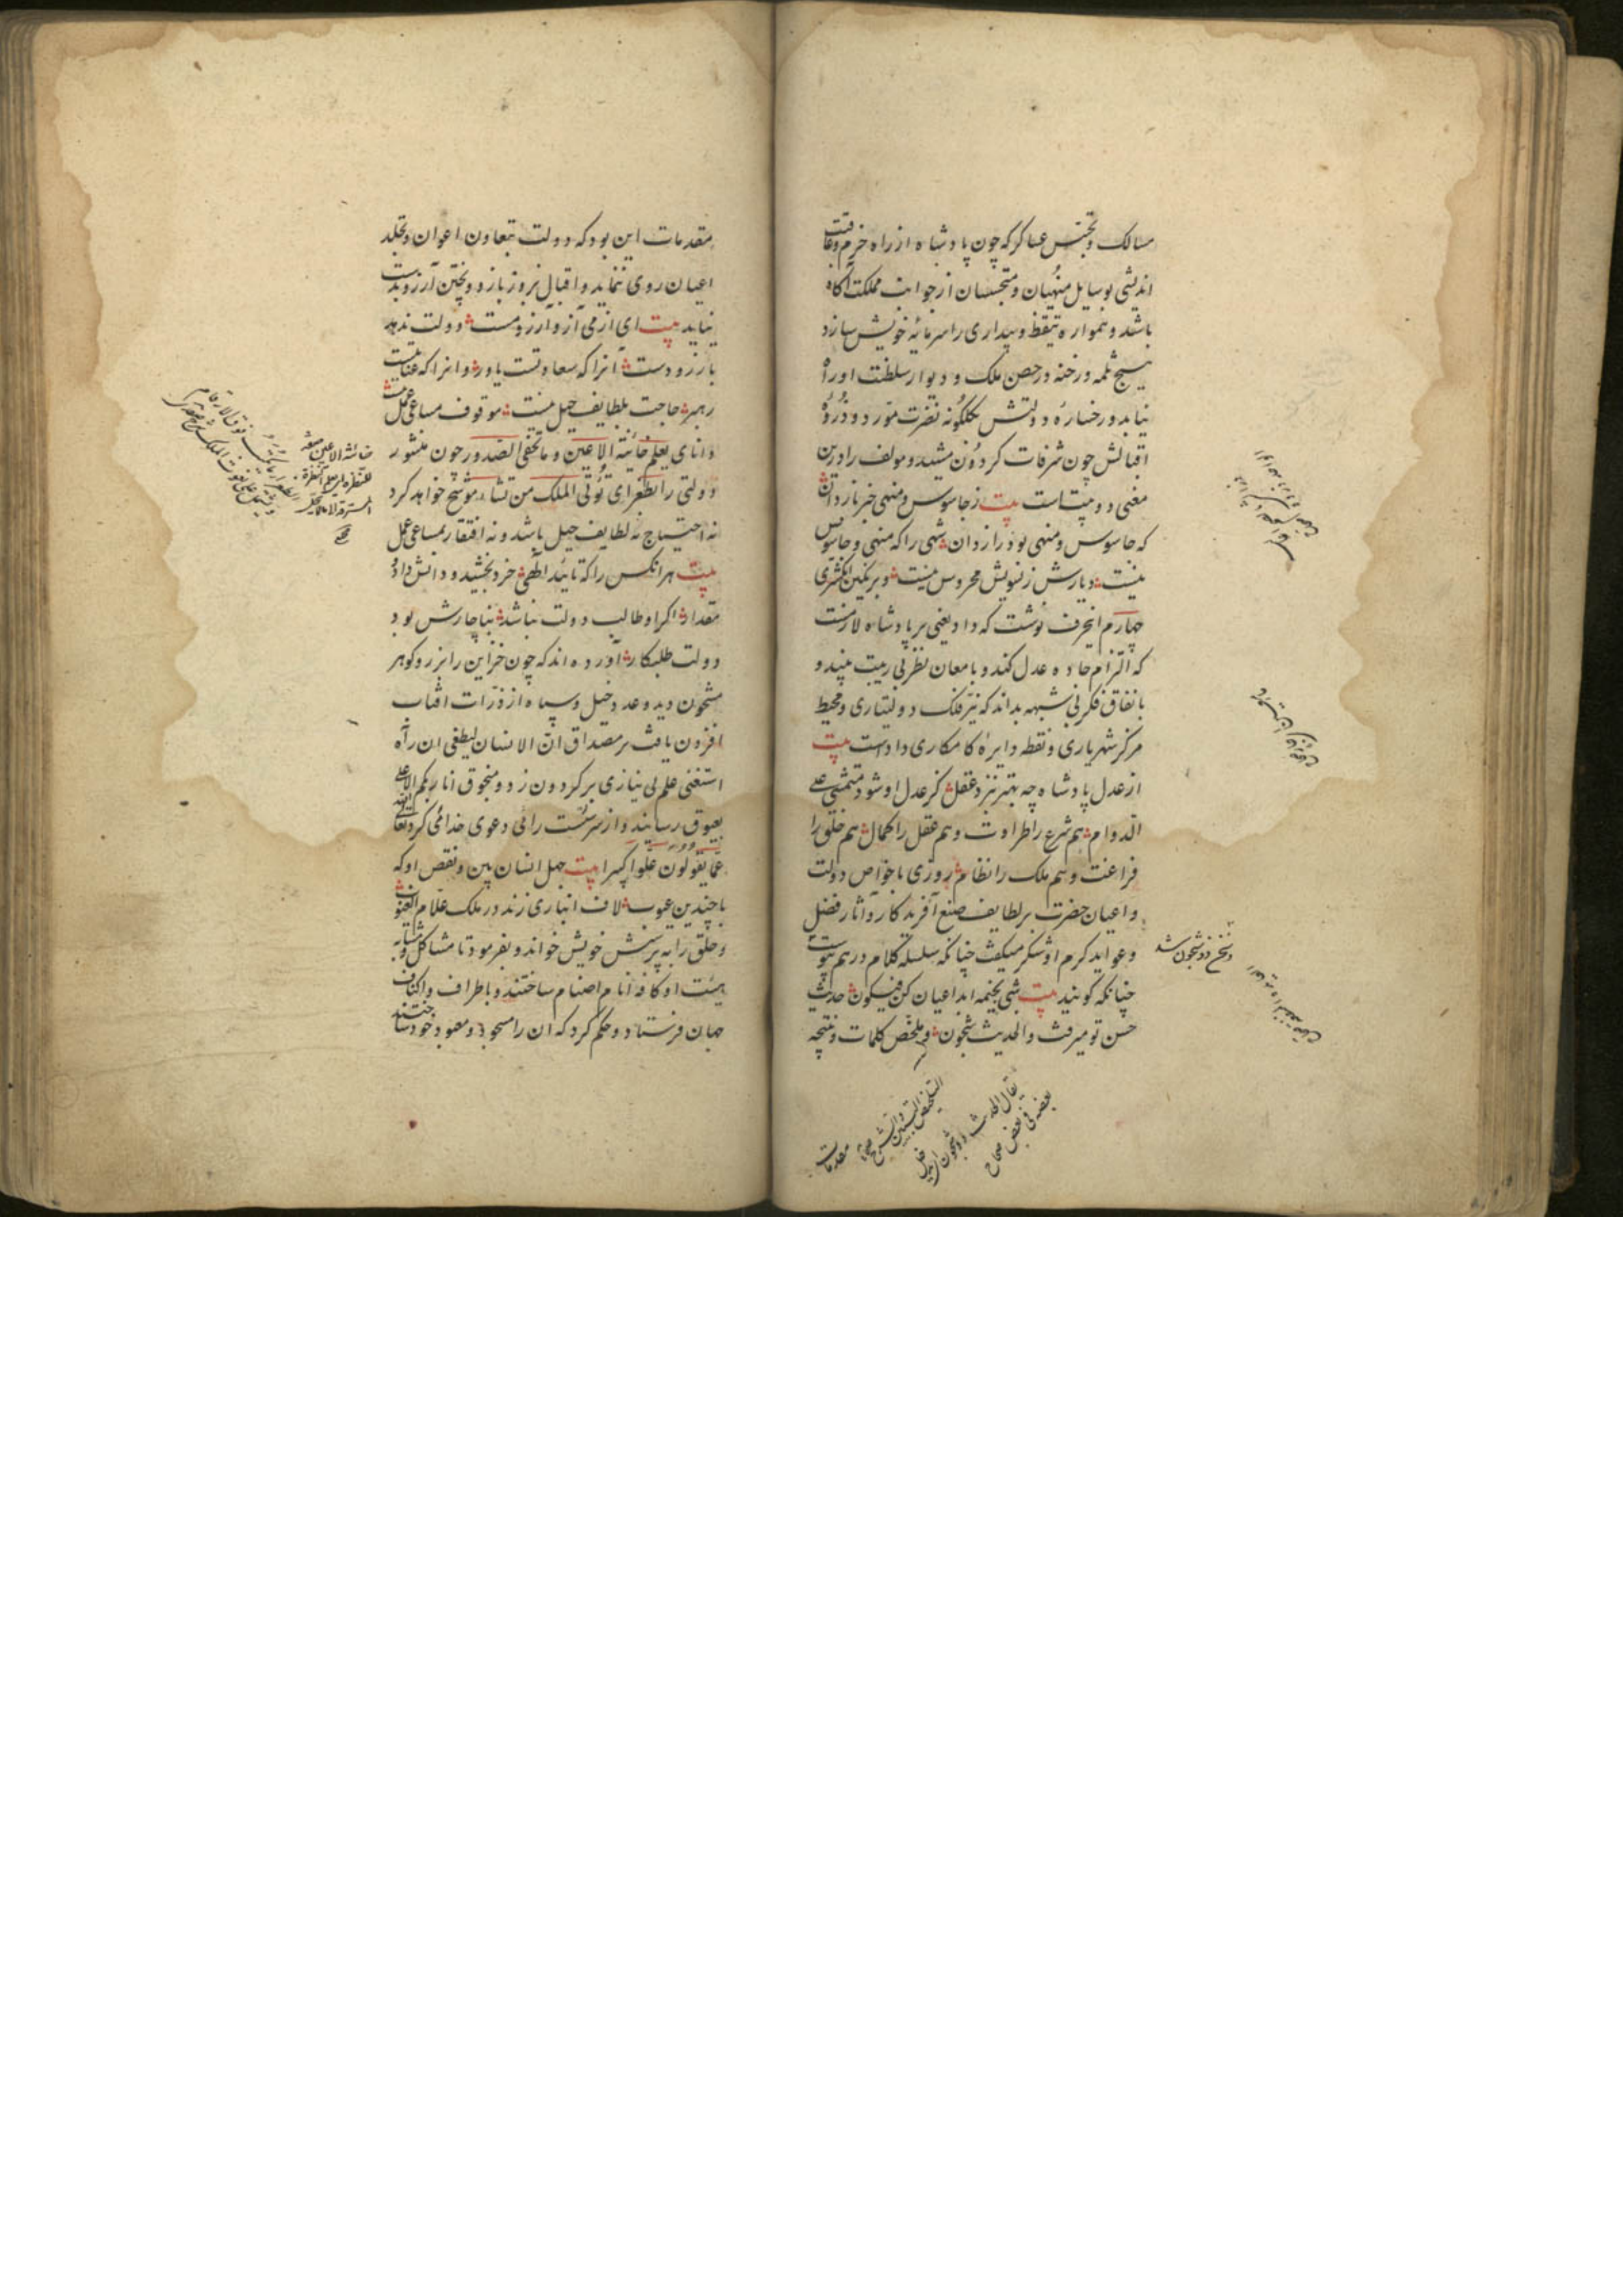 مسالک و تجسس عساکر که چون پادشاه از راه حزم و عاقبت
اندیشی بوسایل منهیان و متجسسان از جوانب مملکت آگاه
باشد و همواره تیقظ و بیداری را سرمایه خویش سازد
هیچ ثلمه و رخنه در حصن ملک و دیوار سلطنت او راه
نیابد و رخساره دولتش بگلگونه نضرت مورد و ذروه
اقبالش چون شرفات گردون مشید و مولف را درین
معنی دو بیتاست بیت ز جاسوس و منهی خبر باز دان
که جاسوس و منهی بود رازدان شهی را که منهی و جاسوس
نیست دیارش ز تشویش محروس نیست و بر نگین انگشتری
چهارم این حرف نوشت که داد یعنی بر پادشاه لازمست
که التزام جاده عدل کند و بامعان نظر بی ریبت بیند و
باتفاق فکر بی شبهه بداند که نیر فلک دولتیاری و محیط
مرکز شهریاری و نقطه دایره کامکاری داد است بیت
از عدل پادشاه چه بهتر بنزد عقل کز عدل او شود متمشی علی
الدوام هم شرع را طراوت و هم عقل را کمال هم خلق را
فراغت و هم ملک را نظام روزی با خواص دولت
و اعیان حضرت بر لطایف صنع آفریدکار و آثار فضل
و عواید کرم او شکر میکفت چنانکه سلسله کلام در هم پیوست
چنانکه گویند بیت شبی بخیمه ابداعیان کن فیکون حدیث
حسن تو میرفت و الحدیث شجون و ملخص کلمات و نتیجه
و سخن ذو شجون شد
التلخیص التبیین و الشرح صحاح
یقال الحدیث ذو شجون ای یدخل
بعضه فی بعض صحاح
مقدمات
مقدمات این بود که دولت بتعاون اعوان و تجلد
اعیان روی ننماید و اقبال بزور بازو و پختن آرزو بدست
نیاید بیت ای از می آز و آرزو مست دولت ندهد
بارزو دست آنرا که سعادتست یاور و انرا که عنایتست
رهبر حاجت بلطایف حیل نیست موقوف مساعی عمل نیست
دانای یعلم خائنة الاعین و ما تخفی الصدور چون منشور
دولتی را بطغرای تؤتی الملک من تشاء موشح خواهد کرد
نه احتیاج به لطایف حیل باشد و نه افتقار بمساعی عمل
بیت هر انکس را که تایید الهی خرد بخشید و دانش داد
مقدار اگر او طالب دولت نباشد بناچارش بود
دولت طلبکار آورده اند که چون خزاین را بزر و گوهر
مشحون دید و عدد خیل و سپاه از ذرات افتاب
افزون یافت بر مصداق ان الانسان لیطغی ان رآه
استغنی علم بی نیازی بر گردون زد و منجوق انا ربکم الاعلی
بعیوق رسانید و از سر سست رائی دعوی خدائی کرد تعالی الله
عما یقولون علوا کبیرا بیت جهل انسان بین و نقص او که
با چندین عیوب لاف انبازی زند در ملک علام الغیوب
و خلق را به پرستش خویش خواند و بفرمود تا مشاکل و مشابه
هیئت او کافه انام اصنام ساختند و باطراف و اکناف
جهان فرستاد و حکم کرد که ان را مسجود و معبود خود ساختند
خائنة الاعین صفة
للنظرة